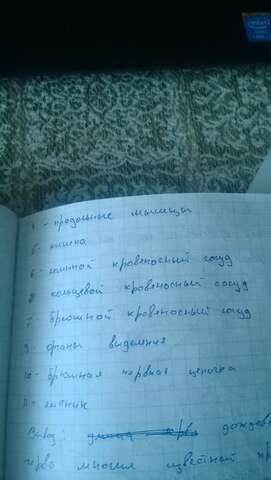 intel
4 - продольные мышцы
5 - кишка
6 - спинной кровеносный сосуд
8 кольцевой кровеносный сосуд
7 - брюшной кровеносный сосуд
9 - органы выделения
10 - брюшная нервная цепочка
11 -
Вывод дождево
черво многим известной пр